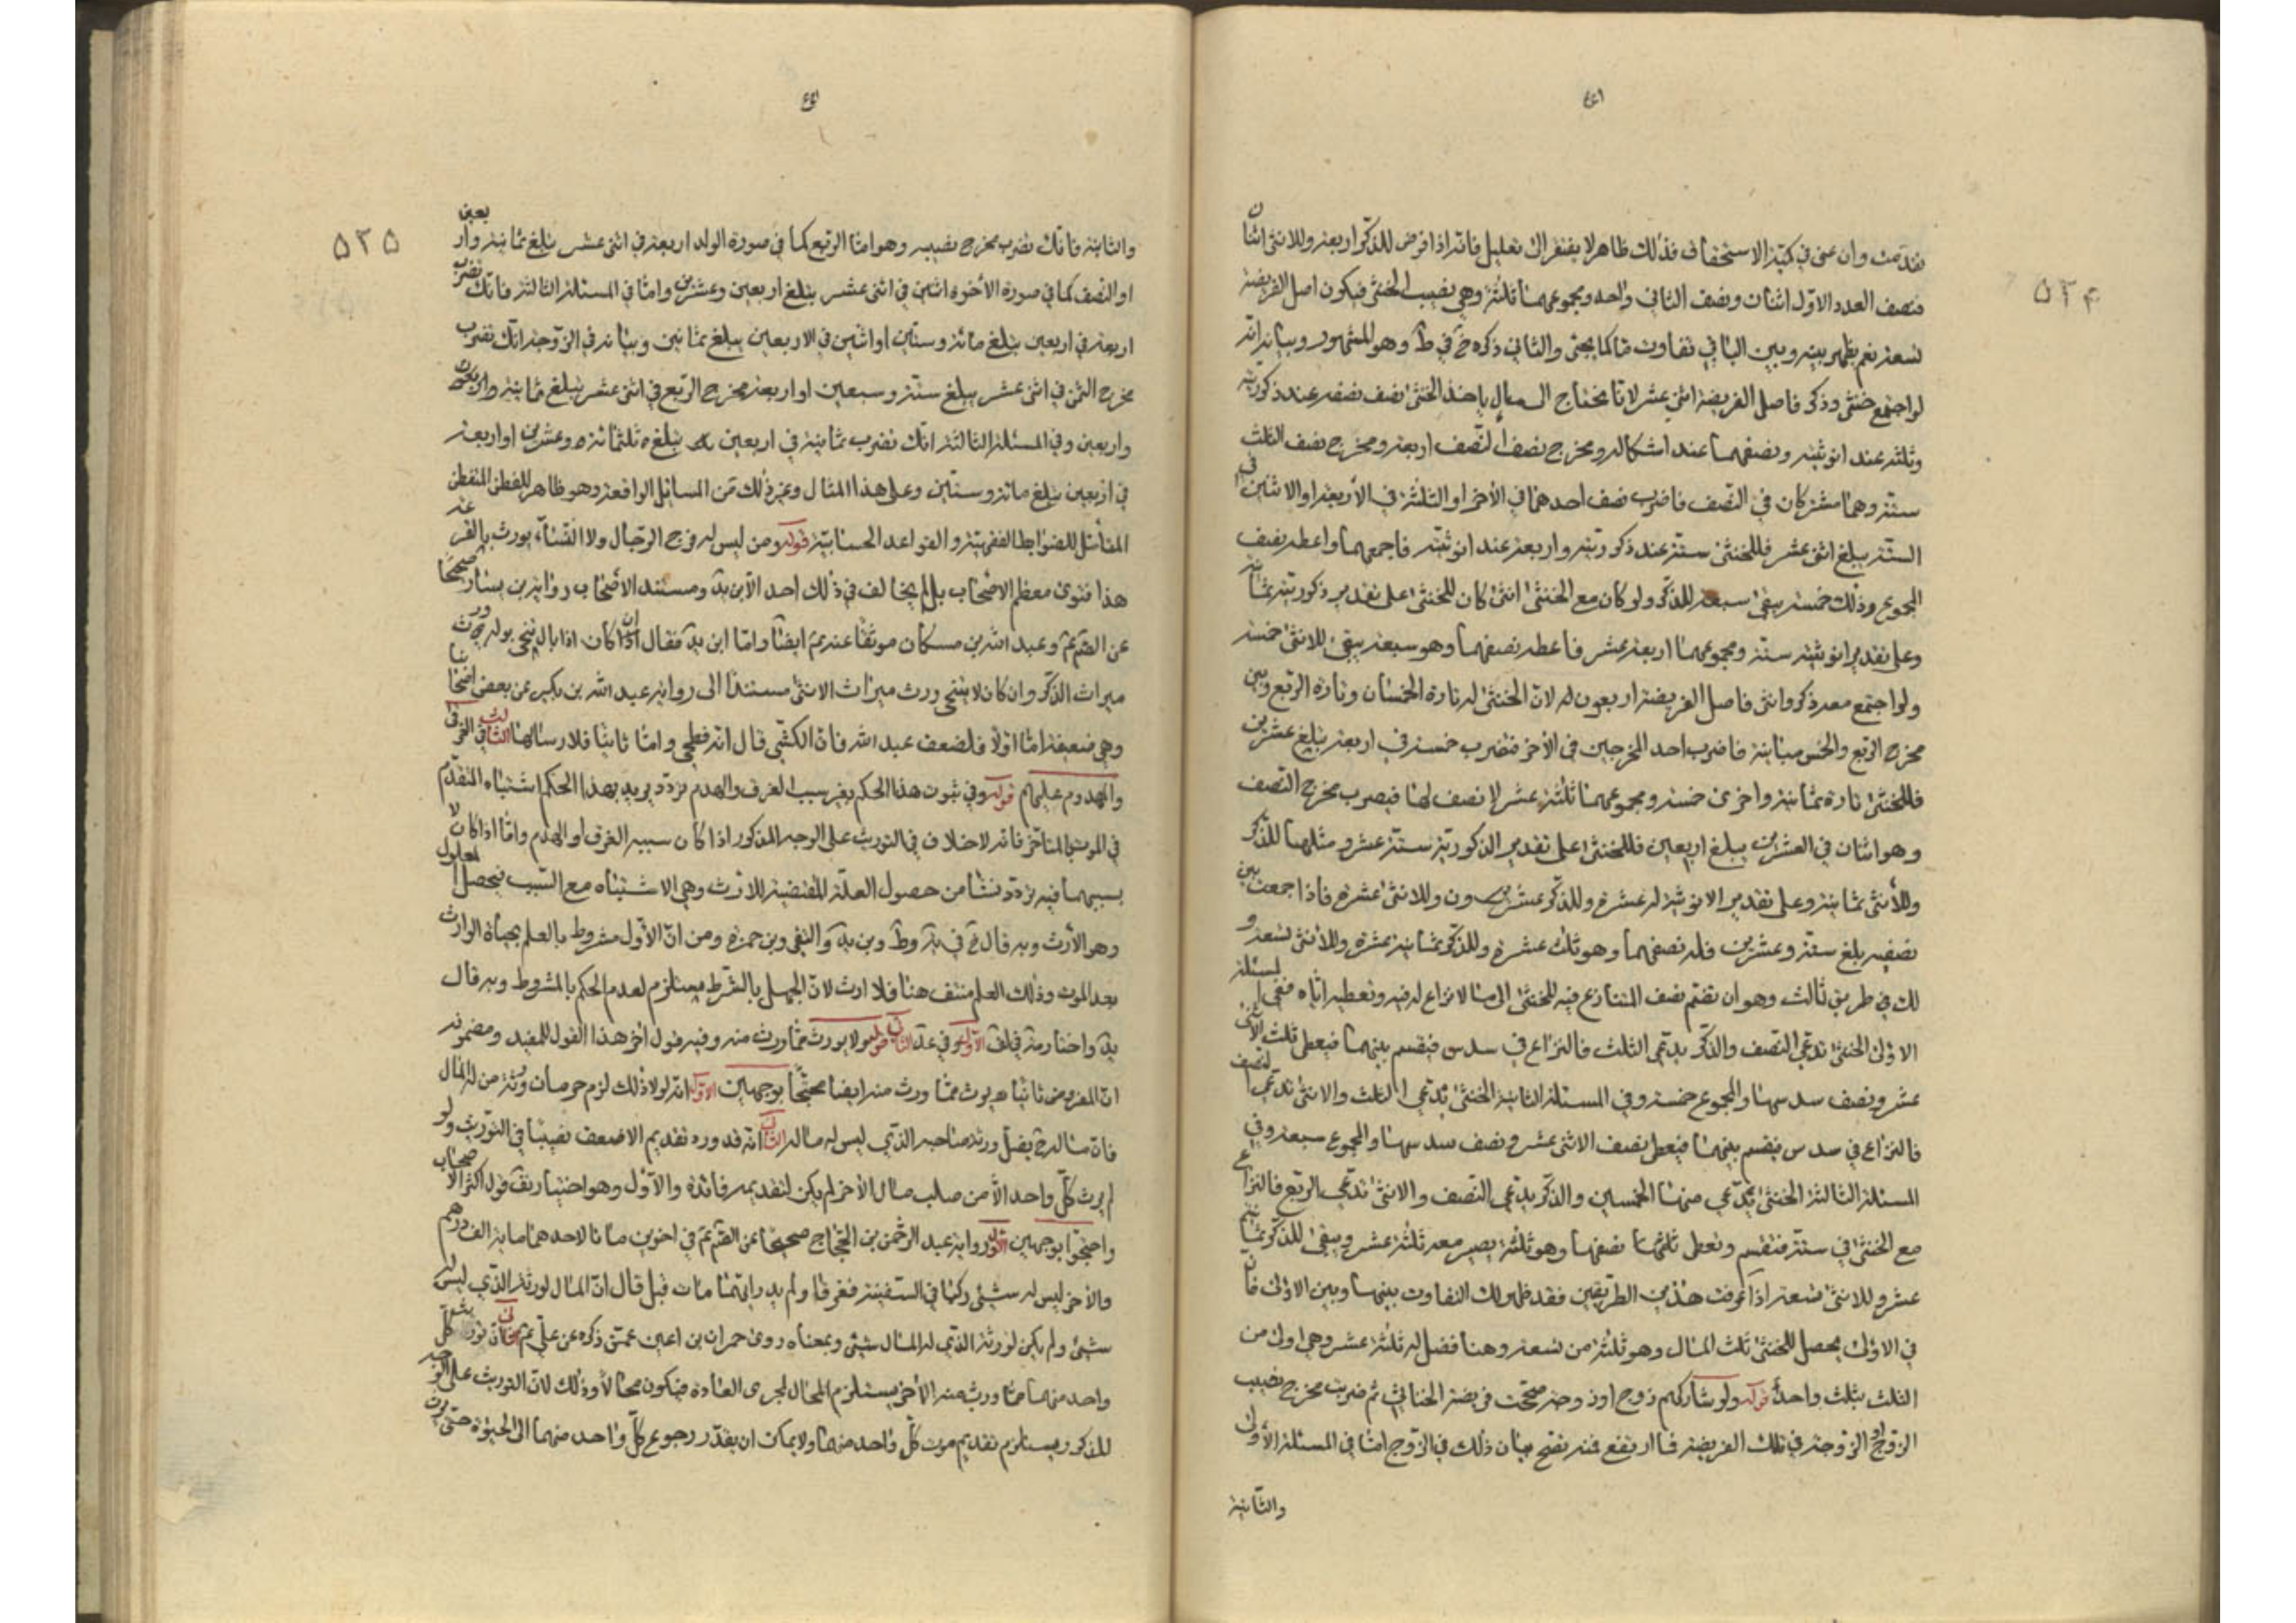 ٥٣٤
تقدمت وان عنى في كميّة الاستحقاق فذلك ظاهر لا يفتقر الى تعليل فانّه اذا فرض للذكر اربعة وللانثى اثنان
فنصف العدد الاوّل اثنان ونصف الثاني واحد ومجموعهما ثلثة وهي نصيب الخنثى فيكون اصل الفريضة
تسعة نعم يظهر بينه وبين الباقي تفاوت ما كما يجئ والثاني ذكره خ في ط وهو المشهور وبيانه انّه
لو اجتمع خنثى وذكر فاصل الفريضة اثنى عشر لانا نحتاج الى مال ياخذ الخنثى نصف نصفه عند ذكوريّته
وثلثه عند انوثيته ونصفهما عند اشكاله ومخرج نصف النّصف اربعة ومخرج نصف الثلث
ستة وهما مشتركان في النّصف فاضرب نصف احدهما في الأخر او الثلثة في الأربعة او الاثنين في
الستّة يبلغ اثنى عشر فللخنثى ستة عند ذكوريّته واربعة عند انوثيّته فاجمعهما واعطه نصف
المجموع وذلك خمسة يبقى سبعة للذّكر ولو كان مع الخنثى انثى كان للخنثى على تقدير ذكوريّته ثمانية
وعلى تقدير انوثيّته ستة ومجموعهما اربعة عشر فاعطه نصفهما وهو سبعة يبقى للانثى خمسة
ولو اجتمع معه ذكر وانثى فاصل الفريضة اربعون لانّ الخنثى له تارة الخمسان وتارة الربع وبين
مخرج الربع والخمس مباينة فاضرب احد المخرجين في الأخر فتضرب خمسة في اربعة يبلغ عشرين
فللخنثى تارة ثمانية واخرى خمسة ومجموعهما ثلثة عشر لا نصف لها فيضرب مخرج النّصف
وهو اثنان في العشرين يبلغ اربعين فللخنثى على تقدير الذكوريّة ستّة عشر ومثلها للذّكر
وللأنثى ثمانية وعلى تقدير الانوثيّة له عشرة وللذّكر عشرون وللانثى عشرة فاذا جمعت بين
نصيبيه بلغ ستّة وعشرين فله نصفهما وهو ثلث عشرة وللذّكر ثمانية عشرة وللانثى تسعة و
لك في طريق ثالث وهو ان تضمّ نصف المتنازع فيه للخنثى الى ما لا نزاع له فيه وتعطيه ايّاه ففي المسئلة
الاولى الخنثى تدّعي النّصف والذّكر يدّعي الثلث فالنزاع في سدس فيقسم بينهما فيعطى ثلث الاثنى
عشر ونصف سدسها والمجموع خمسة وفي المسئلة الثانية الخنثى يدّعي الثلث والانثى تدّعي النّصف
فالنزاع في سدس فيقسم بينهما فيعطى نصف الاثنى عشر ونصف سدسها والمجموع سبعة وفي
المسئلة الثالثة الخنثى يدّعي منها الخمسين والذّكر يدّعي النّصف والانثى تدّعي الرّبع فالنزاع
مع الخنثى في ستّة فتقسم وتعطى نصفها وهو ثلثة يصير معه ثلثة عشر ويبقى للذّكر ثمانية
عشر وللانثى تسعة اذا عرفت هذين الطريقين فقد ظهر لك التفاوت بينهما وبين الاولى فان
في الاولى يحصل للخنثى ثلث المال وهو ثلثة من تسعة وهنا فضل له ثلثة عشر وهي اولى من
الثلث بثلث واحد قوله ولو شاركهم زوج او زوجة صحّحت فريضة الخناثى ثم ضربت مخرج نصيب
الزوج او الزوجة في تلك الفريضة فما ارتفع فمنه تصح بيان ذلك في الزّوج امّا في المسئلة الأولى
والثّانية
٥٣٥
والثانية فانّك تضرب مخرج نصيبه وهو امّا الربع كما في صورة الولد اربعة في اثنى عشر يبلغ ثمانية واربعين
او النّصف كما في صورة الأخوة اثنين في اثنى عشر يبلغ اربعين وعشرين وامّا في المسئلة الثالثة فانّك تضرب
اربعة في اربعين يبلغ مائة وستّين او اثنين في الاربعين يبلغ ثمانين وبيانه في الزّوجة انّك تضرب
مخرج الثّمن في اثنى عشر يبلغ ستّة وسبعين او اربعة مخرج الرّبع في اثنى عشر يبلغ ثمانية واربعون
واربعين وفي المسئلة الثالثة انّك تضرب ثمانية في اربعين يبلغ ثلثمائة وعشرين او اربعة
في اربعين يبلغ مائة وستّين وعلى هذا المثال وغير ذلك من المسائل الواقعة وهو ظاهر للفطن المتفطن
المتأمّل للضوابط الفقهيّة والقواعد الحسابيّة قوله ومن ليس له فرج الرّجال ولا النّساء يورث بالقرعة
هذا فتوى معظم الاصحاب بل لم يخالف في ذلك احد الّا بن يد ومستند الاصحاب رواية بن يسار صحيحًا
عن الصّ عمّ وعبد الله بن مسكان موثّقًا عنه عمّ ايضًا وامّا ابن يد فقال ان كان اذا بال تنحى بوله ورث
ميراث الذّكر وان كان لا ينتحى ورث ميراث الانثى مستندًا الى رواية عبد الله بن بكير عن بعض اصحابنا
وهي ضعيفة امّا اوّلًا فلضعف عبد الله فانّ الكشّي قال انّه فطحي وامّا ثانيًا فلارسالها الثالث في الغرقى
والمهدوم عليهم قوله وفي ثبوت هذا الحكم بغير سبب الغرق والهدم تردّد يريد بهذا الحكم اشتباه المتقدّم
في الموت بالمتأخّر فانّه لا خلاف في التوريث على الوجه المذكور اذا كان سببه الغرق او الهدم وامّا اذا كان لا
بسببهما ففيه تردّد نشأ من حصول العلّة المقتضية للارث وهي الاشتباه مع السّبب فيحصل المعلول
وهو الأرث وبه قال خ في يه وط وبن يد والتقي وبن حمزة ومن انّ الأوّل مشروط بالعلم بحياة الوارث
بعد الموت وذلك العلم منتف هنا فلا ارث لانّ الجهل بالشّرط مستلزم لعدم الحكم بالمشروط وبه قال
انّ المفروض ثانيًا يرث ممّا ورث منه ايضا محتجًّا بوجهين الاوّل انّه لولا ذلك لزم حرمان ورثة من له المال
فانّ ماله ح يصل ورثة صاحبه الذّي ليس له مال الثاني انّه قد ورد تقديم الاضعف نصيبًا في التّوريث ولو
لم يرث كلّ واحد الّا من صلب مال الأخر لم يكن لتقديمه فائدة والأوّل وهو اختيار يق قول اكثر الاصحاب
واحتجّوا بوجهين الاوّل رواية عبد الرّحمن بن الحجّاج صحيحًا عن الصّ عمّ في اخوين ماتا لاحدهما مائة الف درهم
والأخر ليس له شيئ ركبا في السّفينة فغرقا ولم يدر ايّهما مات قبل قال انّ المال لورثة الذّي ليس له
شيئ ولم يكن لورثة الذّي له المال شيئ وبمعناه روى حمران بن اعين عمّن ذكره عن علي عمّ الثاني ان توريث كلّ
واحد منهما ممّا ورث منه الأخر يستلزم المحال لمجرى العادة فيكون محالًا وذلك لانّ التوريث على الوجه
المذكور يستلزم تقديم موت كلّ واحد منهما ولا يمكن ان يقدّر رجوع كلّ واحد منهما الى الحيوة حتّى يرث